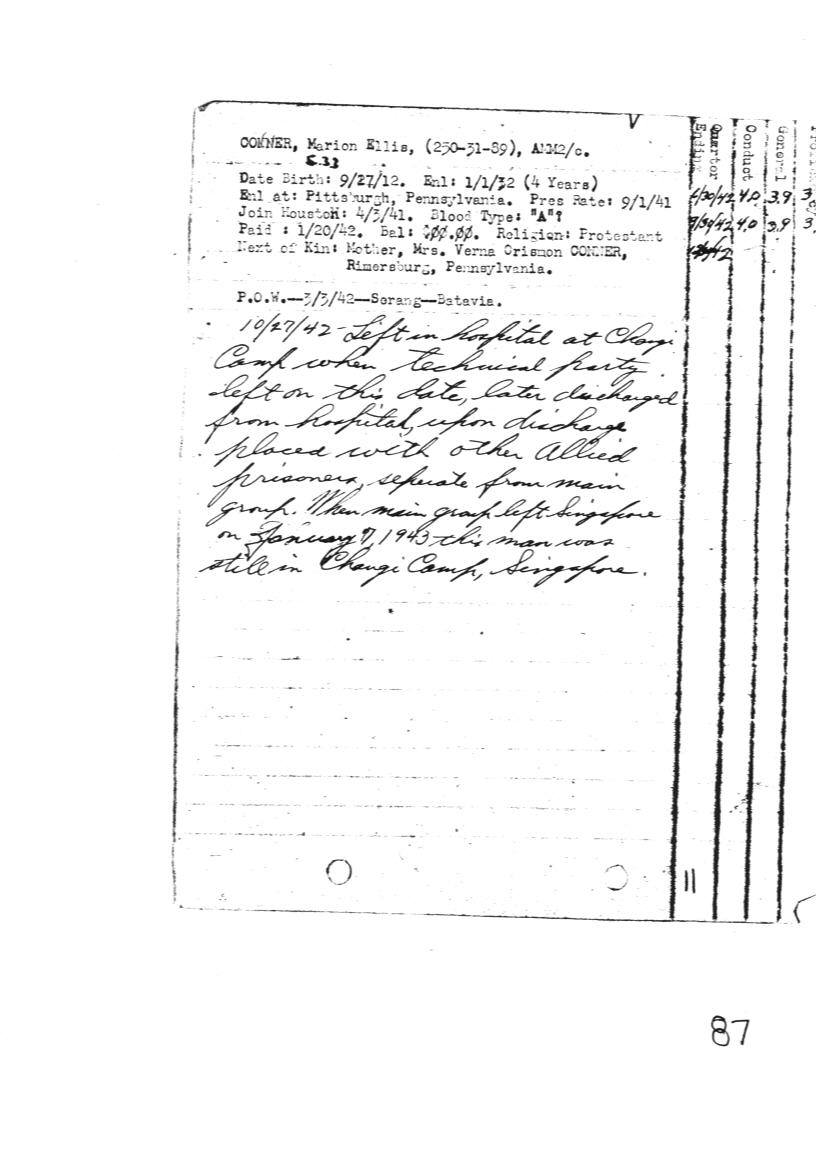 CONNER, Marion Ellis, (250-31-89), AMM2/c.
Date Birth: 9/27/12. Enl: 1/1/32 (4 Years)
Enl at: Pittsburgh, Pennsylvania. Pres Rate: 9/1/41
Join Houston: 4/3/41. Blood Type: "A"?
Paid : 1/20/42. Bal: 00.00. Religion: Protestant
Next of Kin: Mother, Mrs. Verna Orismon CONNER,
Rimersburg, Pennsylvania.
P.O.W.--3/3/42--Serang--Batavia.
10/27/42 - Left in hospital at Changi
Camp when technical party
left on this date, later discharged
from hospital, upon discharge
placed with other Allied
prisoners, seperate from main
group. When main group left Singapore
on January 7, 1943 this man was
still in Changi Camp, Singapore.
Quarter Ending
Conduct
General
6/30/42 4.0 3.9 3
9/30/42 4.0 3.9 3
11
87